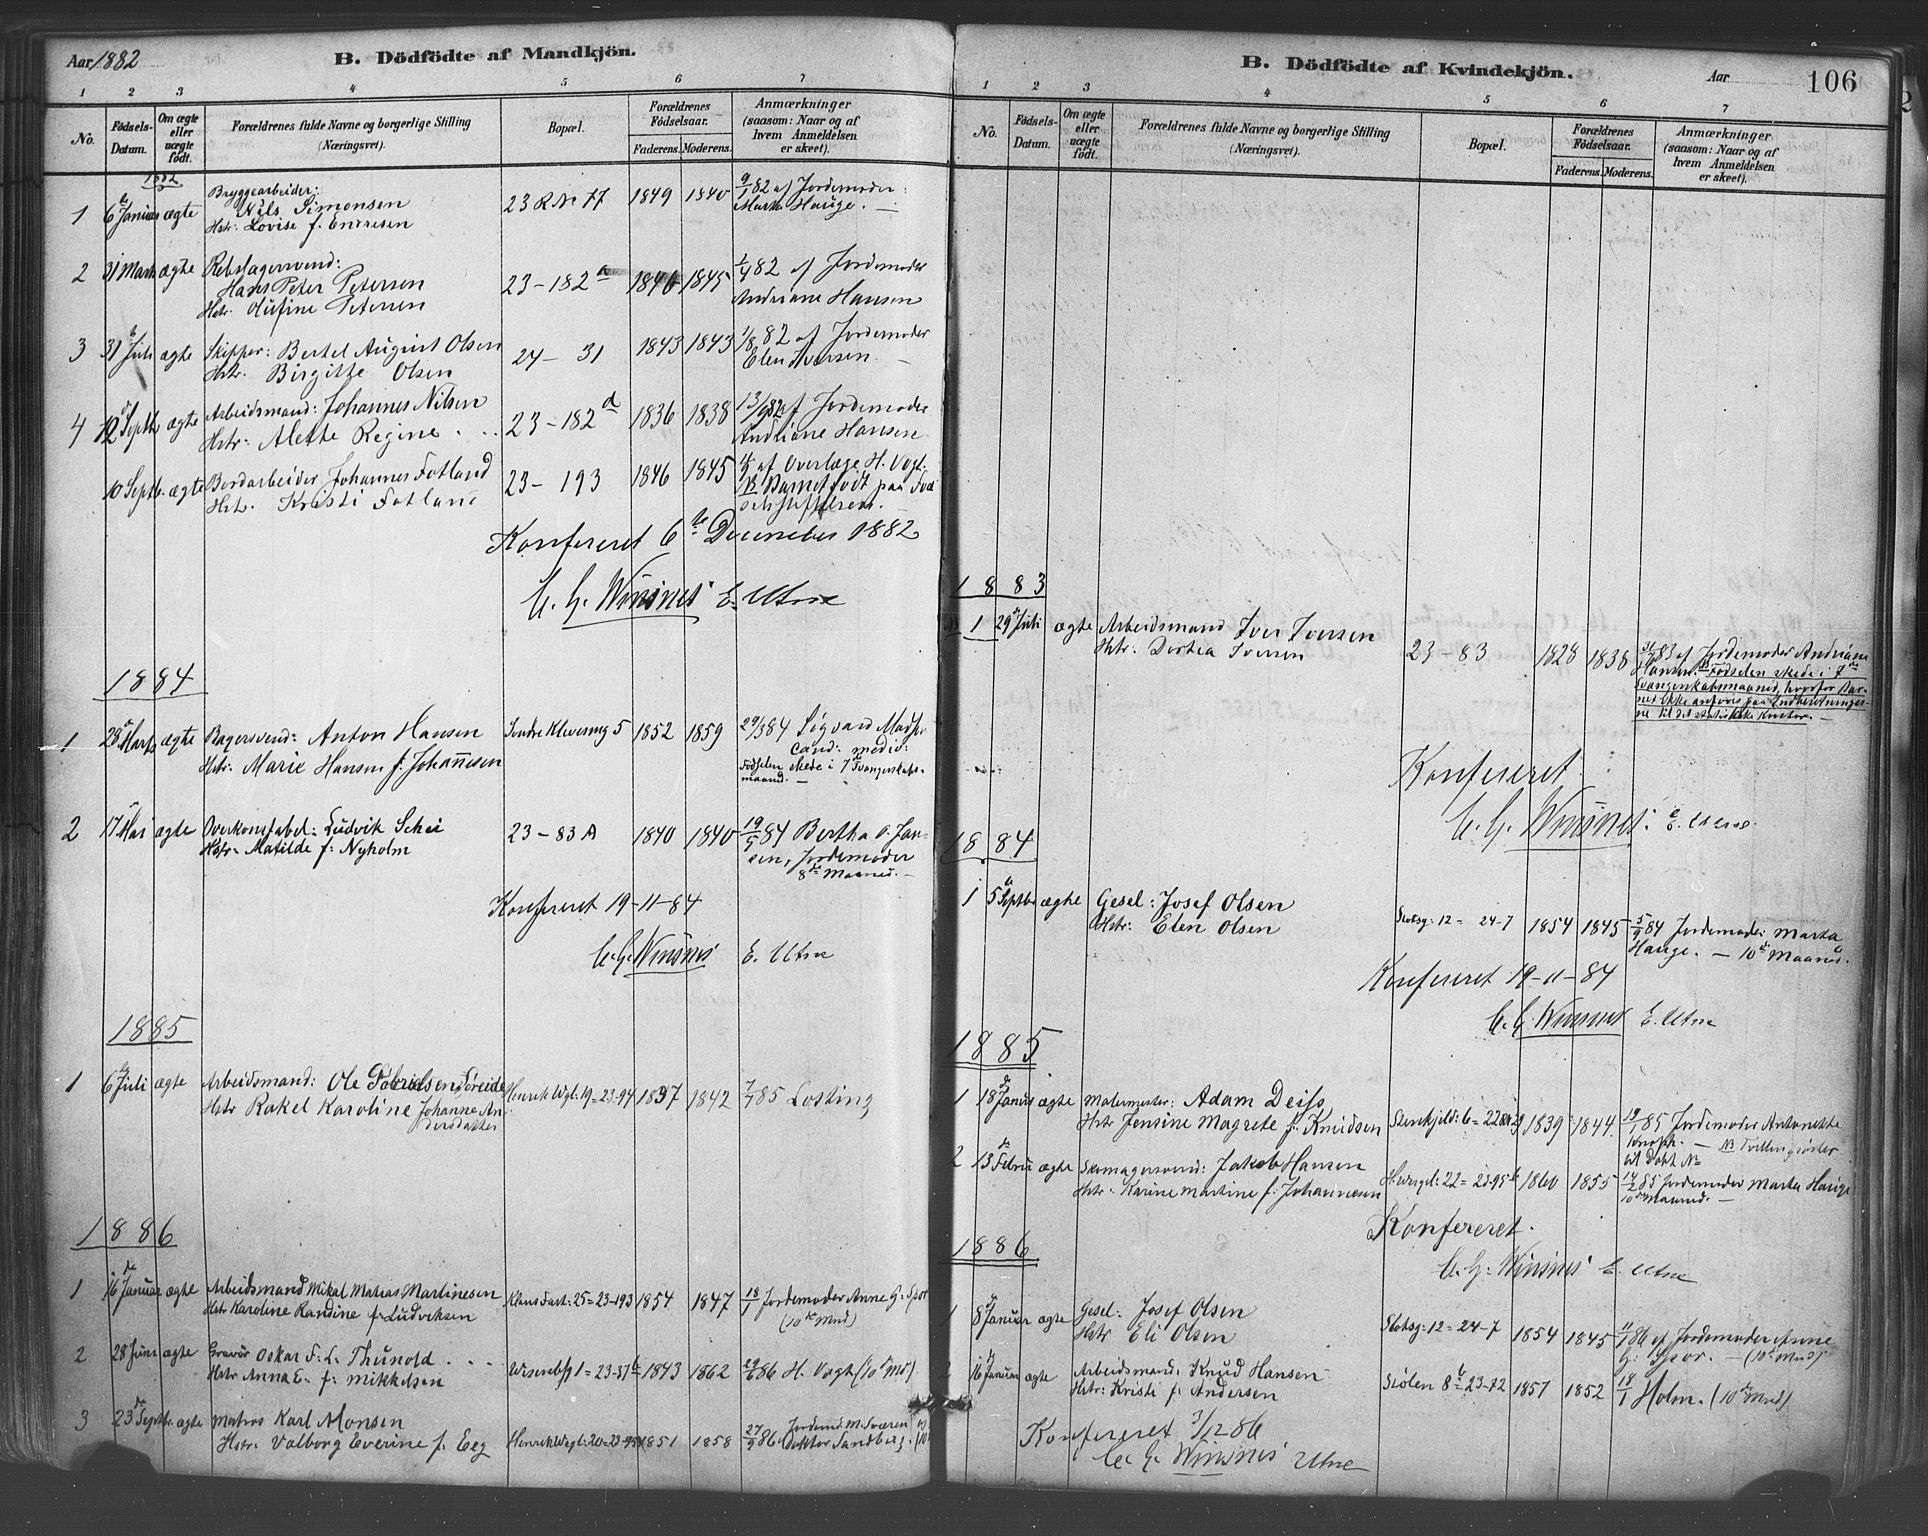 Aar 1882
B. Dödfödte af Mandkjön.
1 2 3 4 5 6 7
No.
Födsels-Datum.
Om ægte eller uægte födt.
Forældrenes fulde Navne og borgerlige Stilling (Næringsvei).
Bopæl.
Forældrenes Födselsaar.
Faderens. Moderens.
Anmærkninger (saasom: Naar og af hvem Anmeldelsen er skeet).
1882
1 6 Januar ægte Bryggearbeider: Nils Simonsen 23 R No 77 1849 1840 9/1 82 af Jordemoder
Hstr: Lovise f. Endresen Marta Hauge. —
2 31 Marts ægte Rebslagersvend: 23-182 a 1840 1845 1/4 82 af Jordemoder
Hans Peter Petersen Andriane Hansen
Hstr. Olufine Petersen
3 31 Juli ægte Skipper: Bertel August Olsen 24- 31 1843 1843 1/8 82 af Jordemoder
Hstr. Birgitte Olsen Elen Iversen. —
4 12 Septb ægte Arbeidsmand: Johannes Nilsen 23-182 d 1836 1838 13/9 82 af Jordemoder
Hstr: Alette Regine Andriane Hansen
10 Septb. ægte Bordarbeider Johannes Fotland 23- 193 1846 1845 af Overlæge H. Vogt.
Hst. Kristi Fotland NB Barnet födt paa Föd
selsstiftelsen.
Konfereret 6te December 1882
C. G. Winsnes E. Utne
1884
1 28 Marts ægte Bagersvend: Anton Hansen Søndre Kleivevg 5 1852 1859 29/3 84 Sigvard
Hstr. Marie Hansen f. Johannesen cand: medic:
Fødselen skede i 7de Svangerskabs-
maaned. —
2 17 Mai ægte Overkonstabel: Ludvik Schei 23-83 A 1840 1840 19/5 84 Bertha O. Jan-
Hstr. Matilde f. Nyholm sen, Jordemoder
8de Maaned. —
Konfereret 19-11-84
C. G. Winsnes E. Utne
1885
1 6 Juli ægte Arbeidsmand: Ole Søreide Henrik Wgl: 19=23-94 1837 1842 7/7 85 Losting
Hstr Rakel Karoline Johanne An
dersdatter
1886
1 16 Januar ægte Arbeidsmand Mikal Matias Martinesen 25=23-193 1854 1847 18/1 Jordemoder Anne G. Spor
Hstr Karoline Randine f. Ludviksen (10de Mnd)
2 28 Juni ægte Gravör Oskar F. L. Thunold 1=23-37 b 1843 1862 29/6 86 H. Vogt (10de Md)
Hstr Anna E. f. Mikkelsen
3 23 Septbr. ægte Matros Karl Monsen Henrik Wgl: 20=23-95 1851 1858 27/9 86 Jordemd M. Sværen
Hstr. Valborg Everine f. Eeg Doktor Sandberg
B. Dödfödte af Kvindekjön.
Aar
106
1 2 3 4 5 6 7
No.
Födsels-Datum.
Om ægte eller uægte födt.
Forældrenes fulde Navne og borgerlige Stilling (Næringsvei).
Bopæl.
Forældrenes Födselsaar.
Faderens. Moderens.
Anmærkninger (saasom: Naar og af hvem Anmeldelsen er skeet).
1883
1 29 Juli ægte Arbeidsmand Iver Iversen 23-83 1828 1838 31/7 83 af Jordemoder Andriane
Hstr: Dortea Iversen Hansen. NB Fødselen skede i 7de
Svangerskabsmaaned, hvorfor Bar-
net ikke anføres paa Indberetninger-
ne til det statistiske Kontor. —
Konfereret
C. G. Winsnes. E. Utne.
1884
1 5 Septbr ægte Gesel: Josef Olsen Slotsg: 12= 24-7 1854 1845 5/9 84 Jordemoder Marta
Hstr: Elen Olsen Hauge. — 10de Maaned.
Konfereret 19-11-84
C. G. Winsnes E. Utne
1885
1 18 Januar ægte Malermester: Adam Deiss Steenkjeld: 6=22 1839 1844 19/1 85 Jordemoder Antonette
Hstr Jensine Magrete f. Knudsen — NB Tvillingsøster
til Døbt No
2 13 Febru ægte Skomagersvend: Jakob Hansen H. Wergel: 22=23-95 b 1860 1855 14/2 85 Jordemoder Marta Hauge
Hstr: Karine Martine f. Johannesen 10de Maaned. —
Konfereret.
C. G. Winsnes E. Utne
1886
1 8 Januar ægte Gesel: Josef Olsen Slotsg: 12=24-7 1854 1845 11/1 86 af Jordemoder Anne
Hstr Eli Olsen G: Spor. — (10de Mnd)
2 16 Januar ægte Arbeidsmand: Knud Hansen Stølen 8 b=23-72 1857 1852 18/1 Holm. (10de Mnd)
Hstr: Kristi f. Andersen
Konfereret 3/12-86
C. G. Winsnes Utne